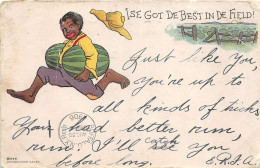 I'SE GOT DE BEST IN DE FIELD!
Just like you,
you're up to
all kinds of tricks
Your had better run,
run, I'll see you
before long.
E.R.J.A.